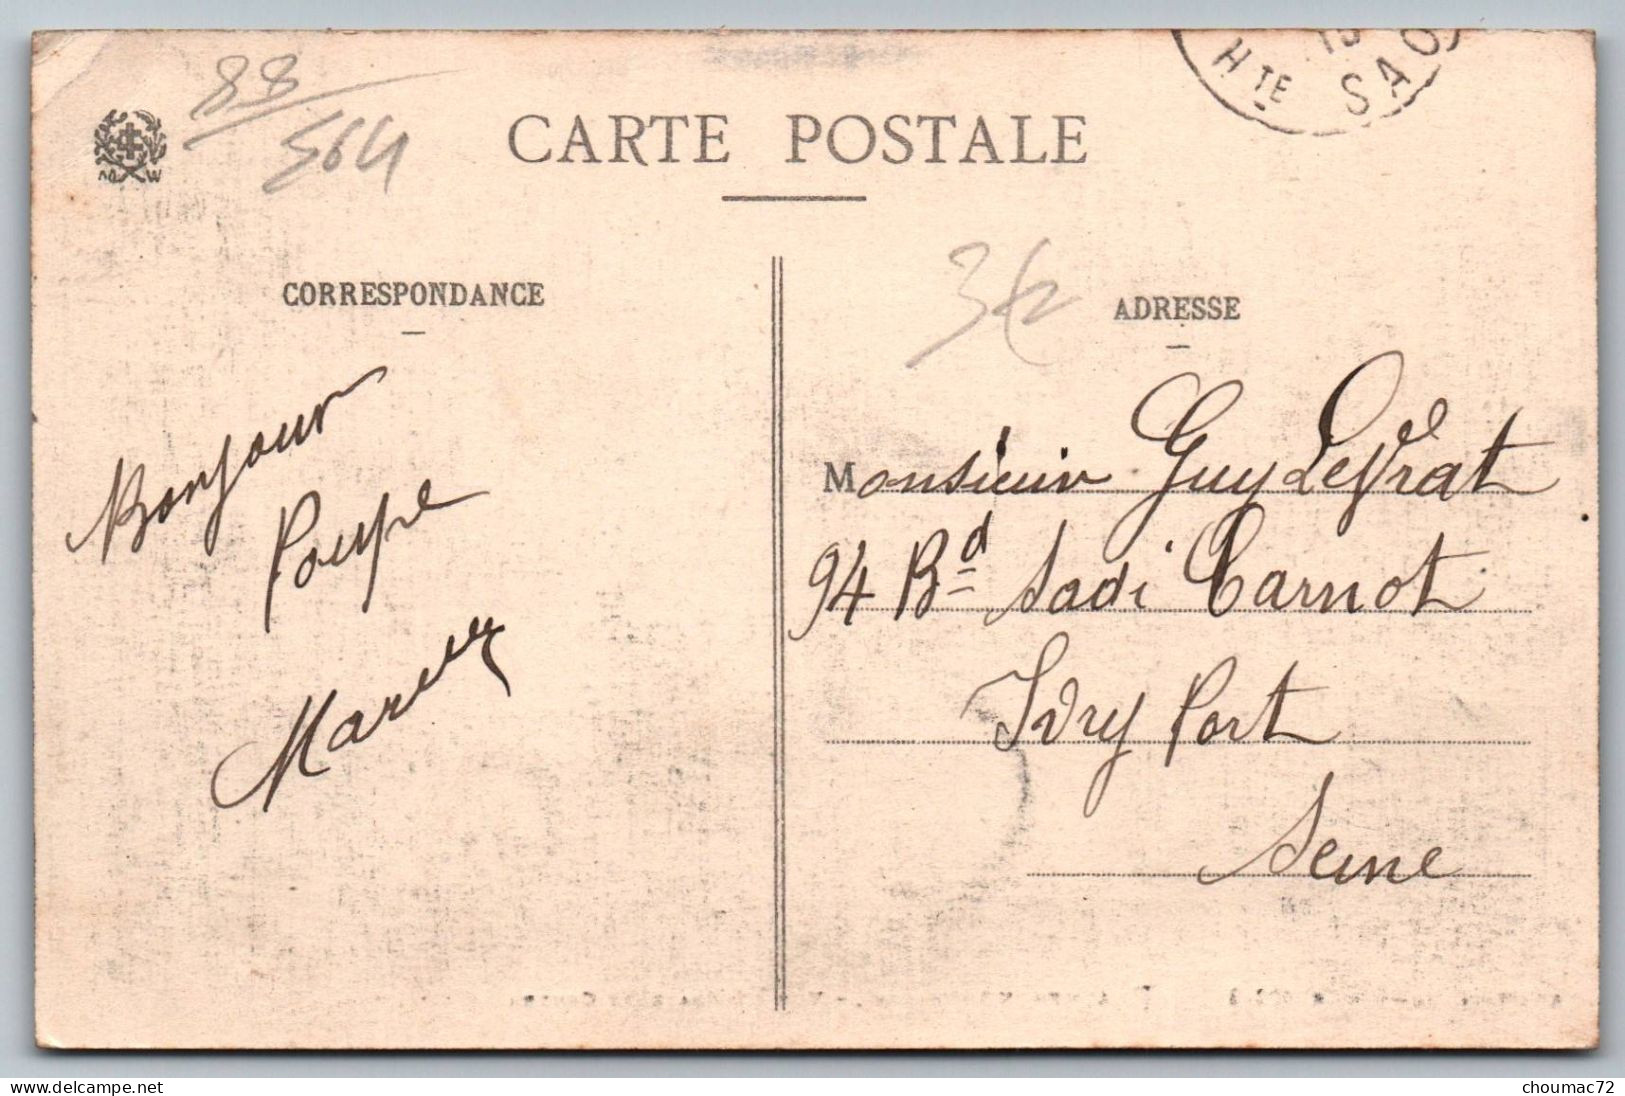 88
564
CARTE POSTALE
HTE SAO
CORRESPONDANCE
Bonjour
Poupe
ADRESSE
Monsieur Guy Levrat
94 Bd Sadi Carnot
Ivry Port
Seine
www.delcampe.net
choumac72